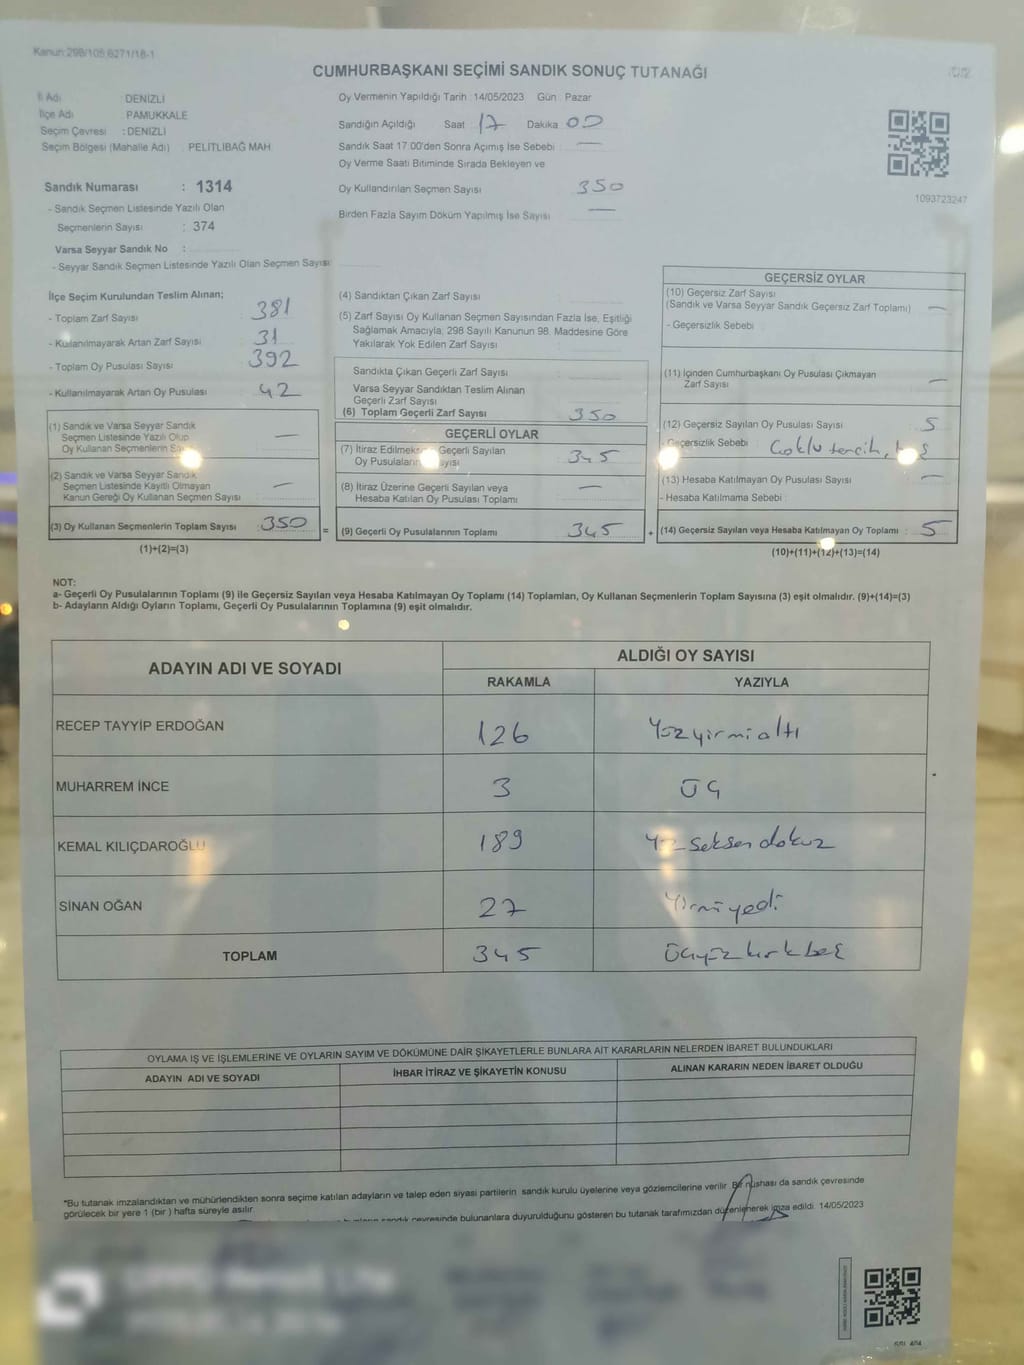 Kanun:298/105,6271/18-1
CUMHURBAŞKANI SEÇİMİ SANDIK SONUÇ TUTANAĞI
İl Adı DENİZLİ
İlçe Adı PAMUKKALE
Seçim Çevresi : DENİZLİ
Seçim Bölgesi (Mahalle Adı) : PELİTLİBAĞ MAH
Sandık Numarası : 1314
- Sandık Seçmen Listesinde Yazılı Olan
Seçmenlerin Sayısı : 374
Varsa Seyyar Sandık No :
- Seyyar Sandık Seçmen Listesinde Yazılı Olan Seçmen Sayısı
Oy Vermenin Yapıldığı Tarih : 14/05/2023 Gün : Pazar
Sandığın Açıldığı Saat 17 Dakika 00
Sandık Saat 17:00'den Sonra Açılmış İse Sebebi : —
Oy Verme Saati Bitiminde Sırada Bekleyen ve
Oy Kullandırılan Seçmen Sayısı 350
Birden Fazla Sayım Döküm Yapılmış İse Sayısı —
1093723247
İlçe Seçim Kurulundan Teslim Alınan;
- Toplam Zarf Sayısı 381
- Kullanılmayarak Artan Zarf Sayısı 31
- Toplam Oy Pusulası Sayısı 392
- Kullanılmayarak Artan Oy Pusulası 42
(1) Sandık ve Varsa Seyyar Sandık
Seçmen Listesinde Yazılı Olup
Oy Kullanan Seçmenlerin —
(2) Sandık ve Varsa Seyyar Sandık
Seçmen Listesinde Kayıtlı Olmayan
Kanun Gereği Oy Kullanan Seçmen Sayısı —
(3) Oy Kullanan Seçmenlerin Toplam Sayısı : 350 =
(1)+(2)=(3)
(4) Sandıktan Çıkan Zarf Sayısı
(5) Zarf Sayısı Oy Kullanan Seçmen Sayısından Fazla İse, Eşitliği
Sağlamak Amacıyla; 298 Sayılı Kanunun 98. Maddesine Göre
Yakılarak Yok Edilen Zarf Sayısı
Sandıkta Çıkan Geçerli Zarf Sayısı
Varsa Seyyar Sandıktan Teslim Alınan
Geçerli Zarf Sayısı
(6) Toplam Geçerli Zarf Sayısı 350
GEÇERLİ OYLAR
(7) İtiraz Edilmeksizin Geçerli Sayılan
Oy Pusulalarının Sayısı 345
(8) İtiraz Üzerine Geçerli Sayılan veya
Hesaba Katılan Oy Pusulası Toplamı —
(9) Geçerli Oy Pusulalarının Toplamı 345 +
GEÇERSİZ OYLAR
(10) Geçersiz Zarf Sayısı
(Sandık ve Varsa Seyyar Sandık Geçersiz Zarf Toplamı) —
- Geçersizlik Sebebi
(11) İçinden Cumhurbaşkanı Oy Pusulası Çıkmayan
Zarf Sayısı —
(12) Geçersiz Sayılan Oy Pusulası Sayısı 5
- Geçersizlik Sebebi Çoklu tercih,
(13) Hesaba Katılmayan Oy Pusulası Sayısı —
- Hesaba Katılmama Sebebi :
(14) Geçersiz Sayılan veya Hesaba Katılmayan Oy Toplamı : 5
(10)+(11)+(12)+(13)=(14)
NOT:
a- Geçerli Oy Pusulalarının Toplamı (9) ile Geçersiz Sayılan veya Hesaba Katılmayan Oy Toplamı (14) Toplamları, Oy Kullanan Seçmenlerin Toplam Sayısına (3) eşit olmalıdır. (9)+(14)=(3)
b- Adayların Aldığı Oyların Toplamı, Geçerli Oy Pusulalarının Toplamına (9) eşit olmalıdır.
ADAYIN ADI VE SOYADI ALDIĞI OY SAYISI
RAKAMLA YAZIYLA
RECEP TAYYİP ERDOĞAN 126 Yüzyirmialtı
MUHARREM İNCE 3 ÜÇ
KEMAL KILIÇDAROĞLU 189 Yüzseksendokuz
SİNAN OĞAN 27 Yirmiyedi
TOPLAM 345 Üçyüzkırkbeş
OYLAMA İŞ VE İŞLEMLERİNE VE OYLARIN SAYIM VE DÖKÜMÜNE DAİR ŞİKAYETLERLE BUNLARA AİT KARARLARIN NELERDEN İBARET BULUNDUKLARI
ADAYIN ADI VE SOYADI İHBAR İTİRAZ VE ŞİKAYETİN KONUSU ALINAN KARARIN NEDEN İBARET OLDUĞU
*Bu tutanak imzalandıktan ve mühürlendikten sonra seçime katılan adayların ve talep eden siyasi partilerin sandık kurulu üyelerine veya gözlemcilerine verilir. Bir nüshası da sandık çevresinde
görülecek bir yere 1 (bir ) hafta süreyle asılır.
sandık çevresinde bulunanlara duyurulduğunu gösteren bu tutanak tarafımızdan düzenlenerek imza edildi. 14/05/2023